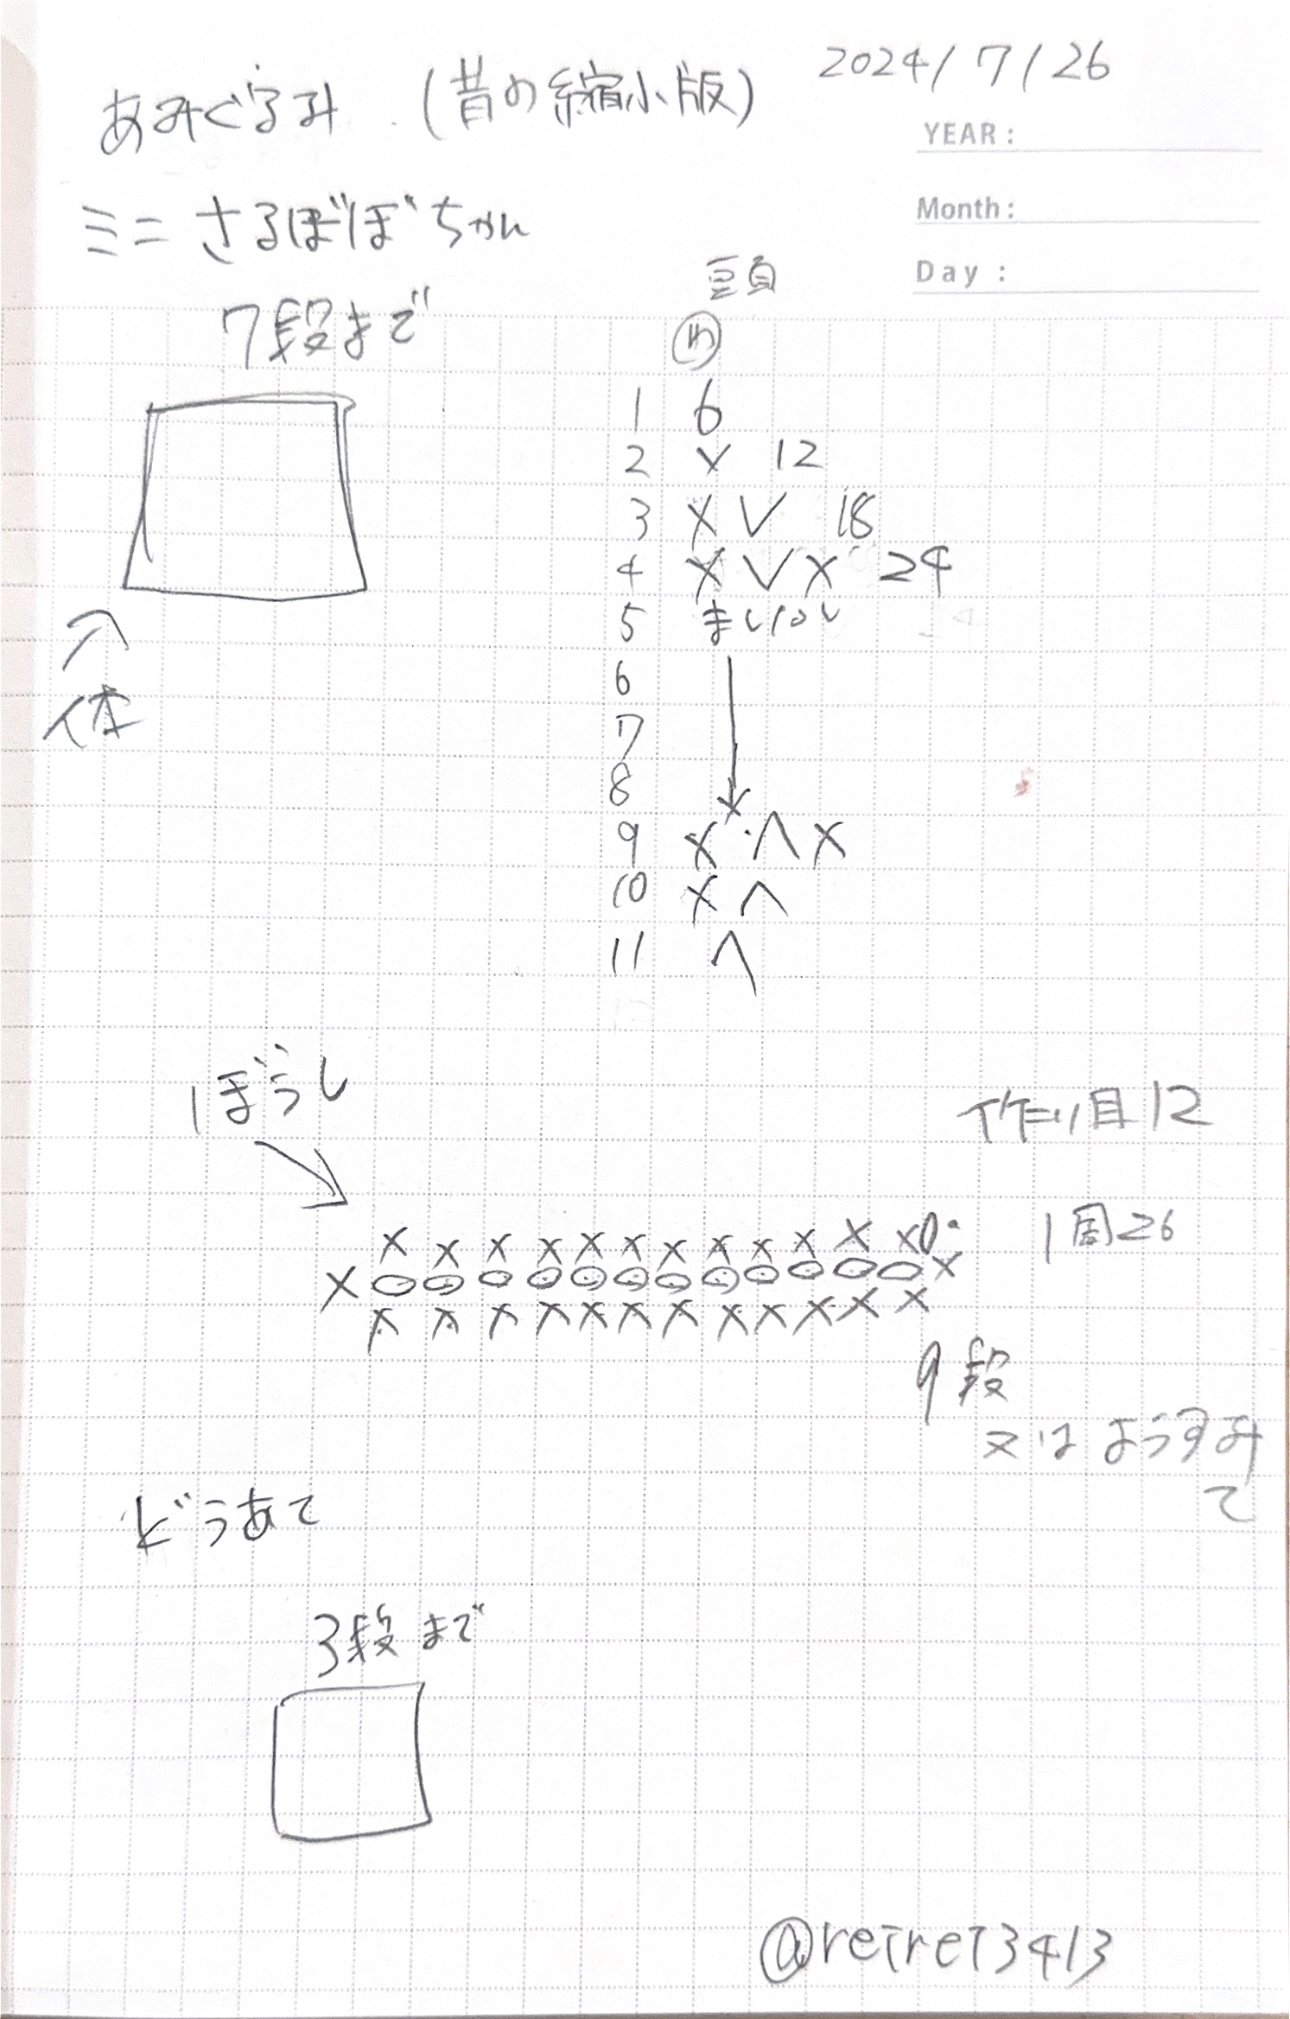 2024/7/26
あみぐるみ (昔の縮小版)
YEAR :
ミニ さるぼぼちゃん
Month :
Day :
頭
7段まで
わ
1 6
2 V 12
3 X V 18
4 X V X 24
5 ましなし
6
7
8
9 X Λ X
10 X Λ
11 Λ
↑
体
ぼうし
作り目12
X X X X X X X X X X X X 0・
1周26
X 0 0 0 0 0 0 0 0 0 0 0 0 X
X X X X X X X X X X X X
9段
又は ようすみ
て
どうあて
3段まで
@reirei3413